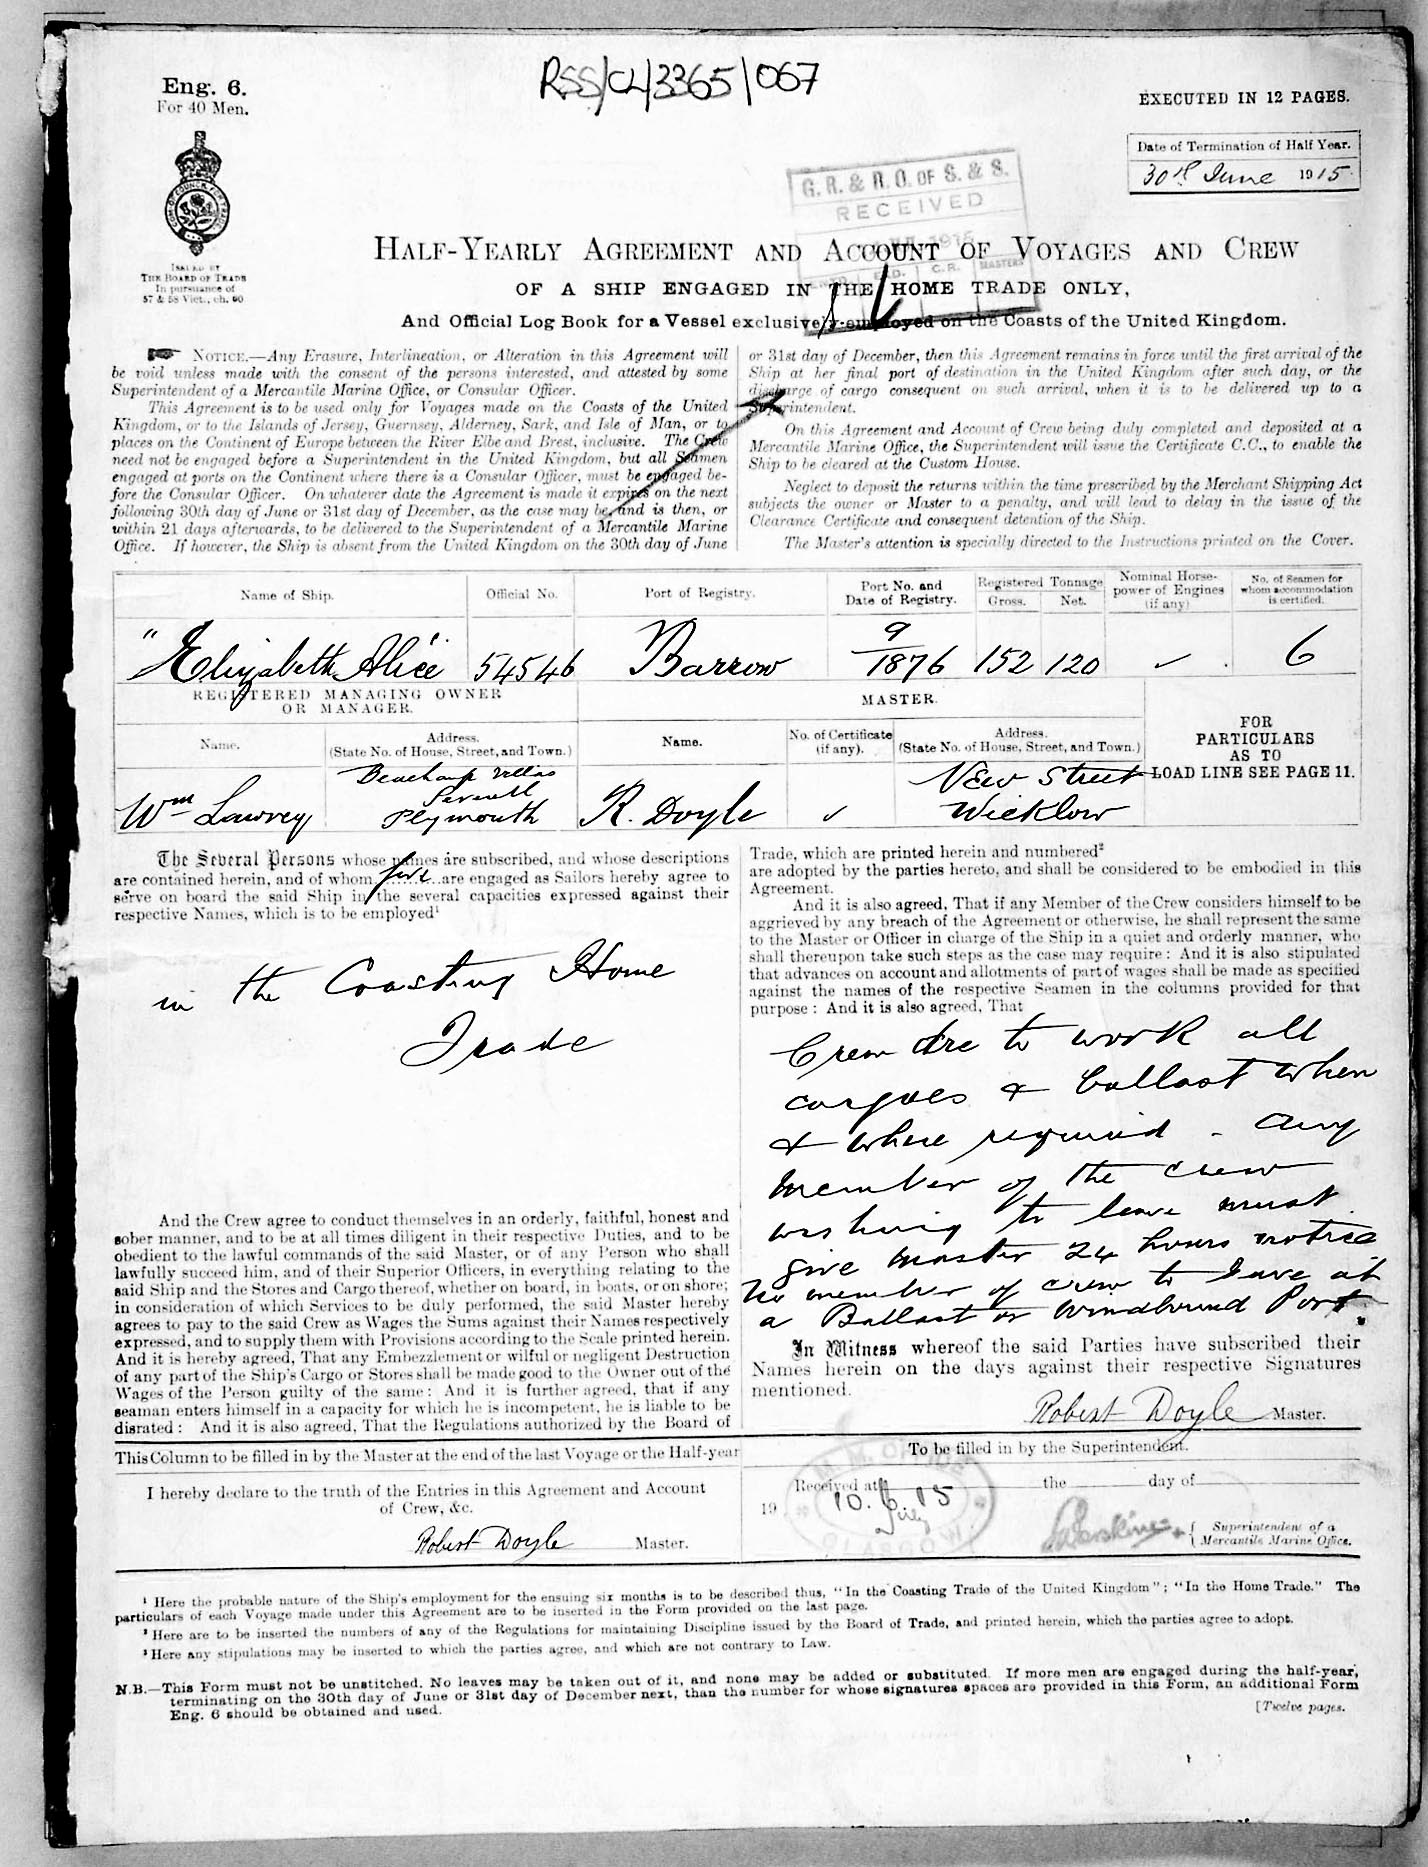 RSS/CL/3365/067
Eng. 6.
For 40 Men.
EXECUTED IN 12 PAGES.
Date of Termination of Half Year.
30th June 1915
ISSUED BY
THE BOARD OF TRADE
In pursuance of
57 & 58 Vict., ch. 60
G. R. & R. O. OF S. & S.
RECEIVED
HALF-YEARLY AGREEMENT AND ACCOUNT OF VOYAGES AND CREW
OF A SHIP ENGAGED IN THE HOME TRADE ONLY,
And Official Log Book for a Vessel exclusively employed on the Coasts of the United Kingdom.
NOTICE.—Any Erasure, Interlineation, or Alteration in this Agreement will
be void unless made with the consent of the persons interested, and attested by some
Superintendent of a Mercantile Marine Office, or Consular Officer.
This Agreement is to be used only for Voyages made on the Coasts of the United
Kingdom, or to the Islands of Jersey, Guernsey, Alderney, Sark, and Isle of Man, or to
places on the Continent of Europe between the River Elbe and Brest, inclusive. The Crew
need not be engaged before a Superintendent in the United Kingdom, but all Seamen
engaged at ports on the Continent where there is a Consular Officer, must be engaged be-
fore the Consular Officer. On whatever date the Agreement is made it expires on the next
following 30th day of June or 31st day of December, as the case may be, and is then, or
within 21 days afterwards, to be delivered to the Superintendent of a Mercantile Marine
Office. If however, the Ship is absent from the United Kingdom on the 30th day of June
or 31st day of December, then this Agreement remains in force until the first arrival of the
Ship at her final port of destination in the United Kingdom after such day, or the
discharge of cargo consequent on such arrival, when it is to be delivered up to a
Superintendent.
On this Agreement and Account of Crew being duly completed and deposited at a
Mercantile Marine Office, the Superintendent will issue the Certificate C.C., to enable the
Ship to be cleared at the Custom House.
Neglect to deposit the returns within the time prescribed by the Merchant Shipping Act
subjects the owner or Master to a penalty, and will lead to delay in the issue of the
Clearance Certificate and consequent detention of the Ship.
The Master's attention is specially directed to the Instructions printed on the Cover.
Name of Ship. Official No. Port of Registry. Port No. and Date of Registry. Registered Tonnage Gross. Net. Nominal Horse-power of Engines (if any) No. of Seamen for whom accommodation is certified.
"Elizabeth Alice" 54546 Barrow 9/1876 152 120 ✓ 6
REGISTERED MANAGING OWNER
OR MANAGER.
MASTER.
Name. Address. (State No. of House, Street, and Town.) Name. No. of Certificate (if any). Address. (State No. of House, Street, and Town.)
FOR
PARTICULARS
AS TO
LOAD LINE SEE PAGE 11.
Beauchamp Villas
Plymouth
Wm Lawrey
R. Doyle ✓
New Street
Wicklow
The Several Persons whose names are subscribed, and whose descriptions
are contained herein, and of whom five are engaged as Sailors hereby agree to
serve on board the said Ship in the several capacities expressed against their
respective Names, which is to be employed¹
in the Coasting Home
Trade
And the Crew agree to conduct themselves in an orderly, faithful, honest and
sober manner, and to be at all times diligent in their respective Duties, and to be
obedient to the lawful commands of the said Master, or of any Person who shall
lawfully succeed him, and of their Superior Officers, in everything relating to the
said Ship and the Stores and Cargo thereof, whether on board, in boats, or on shore;
in consideration of which Services to be duly performed, the said Master hereby
agrees to pay to the said Crew as Wages the Sums against their Names respectively
expressed, and to supply them with Provisions according to the Scale printed herein.
And it is hereby agreed, That any Embezzlement or wilful or negligent Destruction
of any part of the Ship's Cargo or Stores shall be made good to the Owner out of the
Wages of the Person guilty of the same: And it is further agreed, that if any
seaman enters himself in a capacity for which he is incompetent, he is liable to be
disrated: And it is also agreed, That the Regulations authorized by the Board of
Trade, which are printed herein and numbered²
are adopted by the parties hereto, and shall be considered to be embodied in this
Agreement.
And it is also agreed, That if any Member of the Crew considers himself to be
aggrieved by any breach of the Agreement or otherwise, he shall represent the same
to the Master or Officer in charge of the Ship in a quiet and orderly manner, who
shall thereupon take such steps as the case may require: And it is also stipulated
that advances on account and allotments of part of wages shall be made as specified
against the names of the respective Seamen in the columns provided for that
purpose: And it is also agreed, That
Crew are to work all
cargoes & ballast when
& where required - any
member of the crew
wishing to leave must
give master 24 hours notice
No member of crew to leave at
a Ballast or Windbound Port.
In Witness whereof the said Parties have subscribed their
Names herein on the days against their respective Signatures
mentioned.
Robert Doyle Master.
This Column to be filled in by the Master at the end of the last Voyage or the Half-year
I hereby declare to the truth of the Entries in this Agreement and Account
of Crew, &c.
Robert Doyle Master.
To be filled in by the Superintendent.
Received at the day of
19
M. M. OFFICE
10. July 15
GLASGOW
Superintendent of a
Mercantile Marine Office.
¹ Here the probable nature of the Ship's employment for the ensuing six months is to be described thus, "In the Coasting Trade of the United Kingdom"; "In the Home Trade." The
particulars of each Voyage made under this Agreement are to be inserted in the Form provided on the last page.
² Here are to be inserted the numbers of any of the Regulations for maintaining Discipline issued by the Board of Trade, and printed herein, which the parties agree to adopt.
³ Here any stipulations may be inserted to which the parties agree, and which are not contrary to Law.
N.B.—This Form must not be unstitched. No leaves may be taken out of it, and none may be added or substituted. If more men are engaged during the half-year,
terminating on the 30th day of June or 31st day of December next, than the number for whose signatures spaces are provided in this Form, an additional Form
Eng. 6 should be obtained and used.
[Twelve pages.